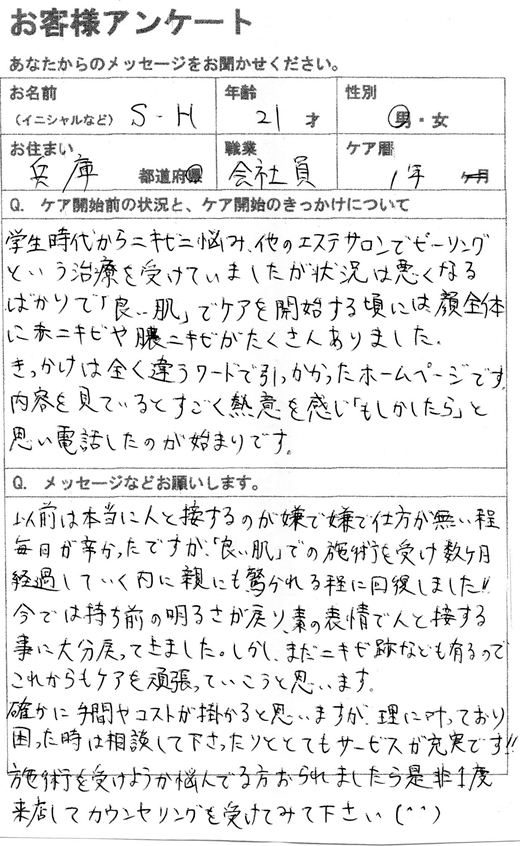 お客様アンケート
あなたからのメッセージをお聞かせください。
お名前 (イニシャルなど) S-H 年齢 21 才 性別 男・女
お住まい 兵庫 都道府県 職業 会社員 ケア暦 1年 ヶ月
Q. ケア開始前の状況と、ケア開始のきっかけについて
学生時代からニキビに悩み、他のエステサロンでピーリング
という治療を受けていましたが状況は悪くなる
ばかりで「良い肌」でケアを開始する頃には顔全体
に赤ニキビや膿ニキビがたくさんありました。
きっかけは全く違うワードで引っかかったホームページです。
内容を見ているとすごく熱意を感じ「もしかしたら」と
思い電話したのが始まりです。
Q. メッセージなどお願いします。
以前は本当に人と接するのが嫌で嫌で仕方が無い程
毎日が辛かったですが、「良い肌」での施術を受け数ヶ月
経過していく内に親にも驚かれる程に回復しました!!
今では持ち前の明るさが戻り、素の表情で人と接する
事に大分戻ってきました。しかし、まだニキビ跡なども有るので
これからもケアを頑張っていこうと思います。
確かに手間やコストが掛かると思いますが、理に叶っており
困った時は相談して下さったりととてもサービスが充実です!!
施術を受けようか悩んでる方おられましたら是非1度
来店してカウンセリングを受けてみて下さい(^^)